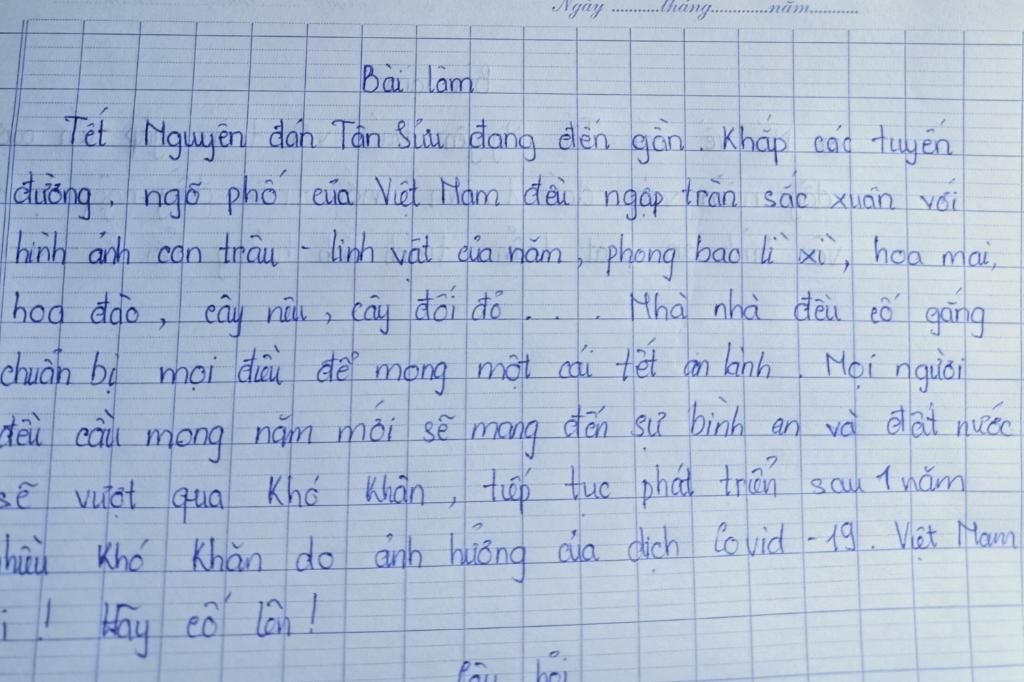 Ngày ..........tháng............năm..........
Bài làm
Tết Nguyên đán Tân Sửu đang đến gần. Khắp các tuyến
đường, ngõ phố của Việt Nam đều ngập tràn sắc xuân với
hình ảnh con trâu - linh vật của năm, phong bao lì xì, hoa mai,
hoa đào, cây nêu, cây đối đỏ . . . Nhà nhà đều cố gắng
chuẩn bị mọi điều để mong một cái tết an lành. Mọi người
đều cầu mong năm mới sẽ mang đến sự bình an và đất nước
sẽ vượt qua khó khăn, tiếp tục phát triển sau 1 năm
khó khăn do ảnh hưởng của dịch Covid-19. Việt Nam
! Hãy cố lên!
hỏi